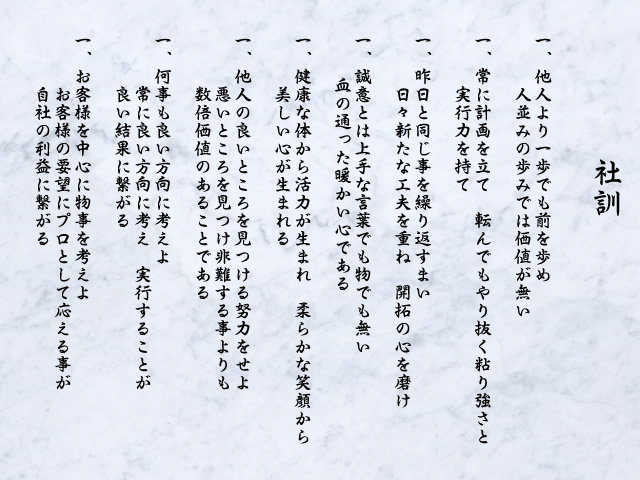 社訓
一、他人より一歩でも前を歩め
人並みの歩みでは価値が無い
一、常に計画を立て 転んでもやり抜く粘り強さと
実行力を持て
一、昨日と同じ事を繰り返すまい
日々新たな工夫を重ね 開拓の心を磨け
一、誠意とは上手な言葉でも物でも無い
血の通った暖かい心である
一、健康な体から活力が生まれ 柔らかな笑顔から
美しい心が生まれる
一、他人の良いところを見つける努力をせよ
悪いところを見つけ非難する事よりも
数倍価値のあることである
一、何事も良い方向に考えよ
常に良い方向に考え 実行することが
良い結果に繋がる
一、お客様を中心に物事を考えよ
お客様の要望にプロとして応える事が
自社の利益に繋がる